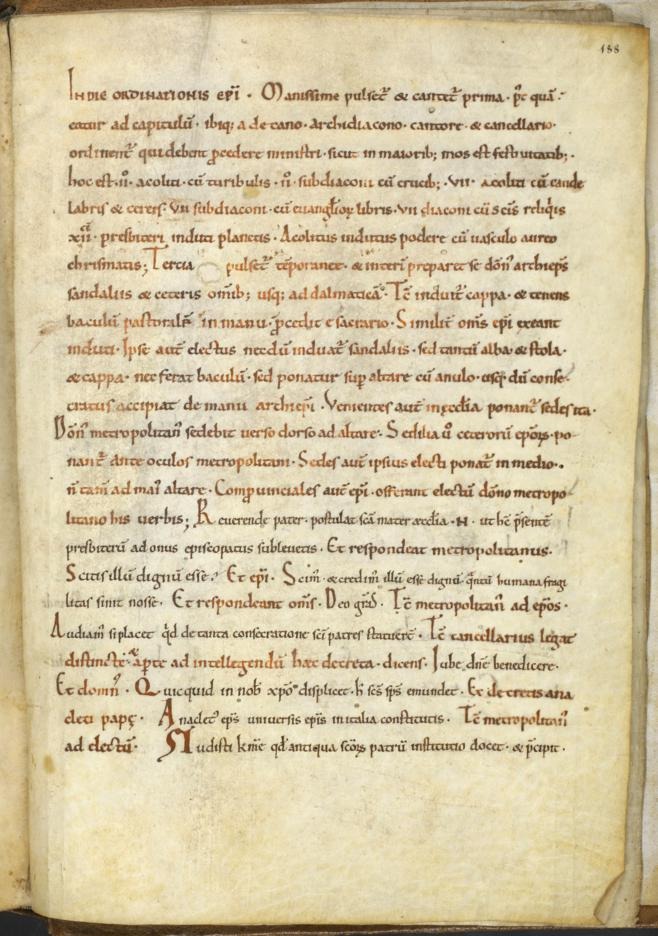 188
IN DIE ORDINATIONIS EPĪ · Manissime pulset᷑ & cantet᷑ prima · p̄c quā
eatur ad capitulū · ibiq; a decano · archidiacono · cantore · & cancellario ·
ordinent᷑ qui debent p̄cedere ministri · sicut in maiorib; mos est festiuitatib; ·
hoc est · II · acoliti · cū turibulis · II · subdiaconi cū crucib; · VII · acoliti cū cande
labris & cereis · VII subdiaconi · cū euangłioꝝ libris · VII diaconi cū scīs reliq̇is
XII · presbiteri induti planetis · Acolitus indutus podere cū uasculo aureo
chrismatis; Tercia pulset᷑ tēporanee · & interī preparet se dōn̄ archiep̄s
sandaliis & ceteris om̄ib; usq; ad dalmaticā · Tc̄ induit᷑ cappa · & tenens
baculū pastoralē in manu · p̄cedit e sacrario · Similit᷑ om̄s ep̄i exeant
induti · Ipse aut̄ electus necdū induat᷑ sandaliis · sed tantū alba · & stola ·
& cappa · nec ferat baculū · sed ponatur sup̄ altare cū anulo · usq̇ dū conse-
cratus accipiat de manu archiep̄i · Venientes aut̄ in ęccl̄ia ponant᷑ sedes ita ·
Dōn̄ metropolitan̄ sedebit uerso dorso ad altare · Sedilia ū ceterorū ep̄oꝝ · po-
nant᷑ ante oculos metropolitani · Sedes aut̄ ipsius electi ponat᷑ in medio ·
n̄ tam̄ ad mai᷑ altare · Comp̄uinciales aut̄ ep̄i · offerant electū dōno metropo-
litano his uerbis; Reuerende pater · postulat sc̄a mater ęccl̄ia · N · ut hc̄ p̄sentē
presbiterū ad onus episcopatus subleuetis · Et respondeat metropolitanus ·
Scitis illū dignū esse? Et ep̄i · Scim᷒ · & credim᷒ illū esse dignū · q̄ntū humana fragi
litas sinit nosse · Et respondeant om̄s · Deo grās̄ · Tc̄ metropolitan̄ ad ep̄os ·
Audiam᷒ si placet q̇d de tanta consecratione sc̄i patres statuere · Tc̄ cancellarius legat
distincte · & ap̄te ad intellegendū hæc decreta · dicens · Iube dn̄e benedicere ·
Et domn̄ · Quicquid in nob̄ xp̄o displicet · h̄ sc̄s sp̄s emundet · Ex decretis ana
cleti papę · Anaclet᷒ ep̄s uniuersis ep̄is in italia constitutis · Tc̄ metropolitan̄
ad electū · Audisti km̄e qd̄ antiqua sc̄oꝝ patrū institutio docet · & p̄cipit ·